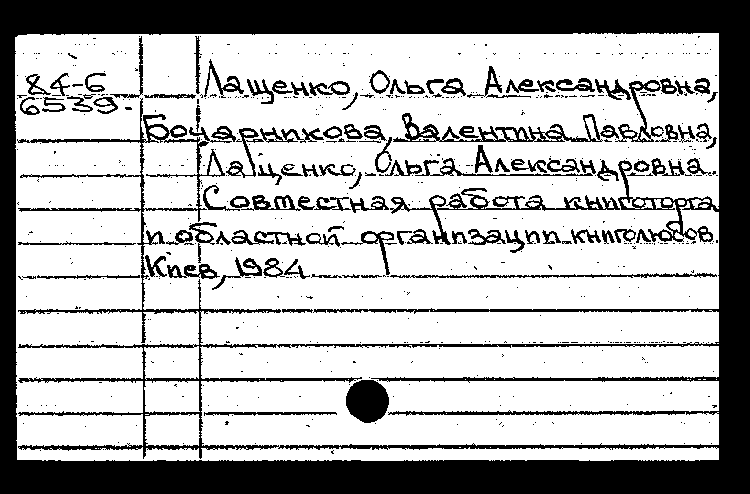 84-6
6539.
Лащенко, Ольга Александровна,
Бочарникова, Валентина Павловна,
Лащенко, Ольга Александровна
Совместная работа книготорга
и областной организации книголюбов
Киев, 1984